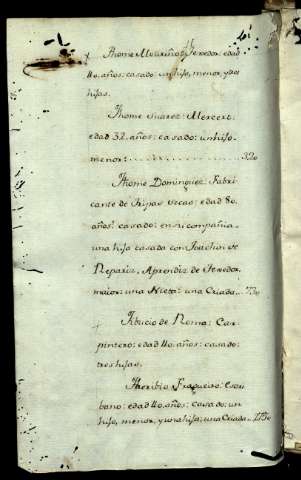 Thome Mouriño: Texedor: edad
40 años: casado: un hijo, menor, y dos
hijas.
Thome Suarez: Mercero:
edad 32 años: casado: un hijo
menor: 320
Thome Dominguez: Fabri
cante de Tripas secas: edad 50
años: casado: en su compañia
una hija casada con Joachin de
Repariz, Aprendiz de Texedor,
maior: una Nieta: una Criada 730
Tibucio de Roma: Car
pintero: edad 40 años: casado:
tres hijas.
Theribio Fragueiro: Escri
bano: edad 40 años: casado: un
hijo, menor, y una hija; una Criada